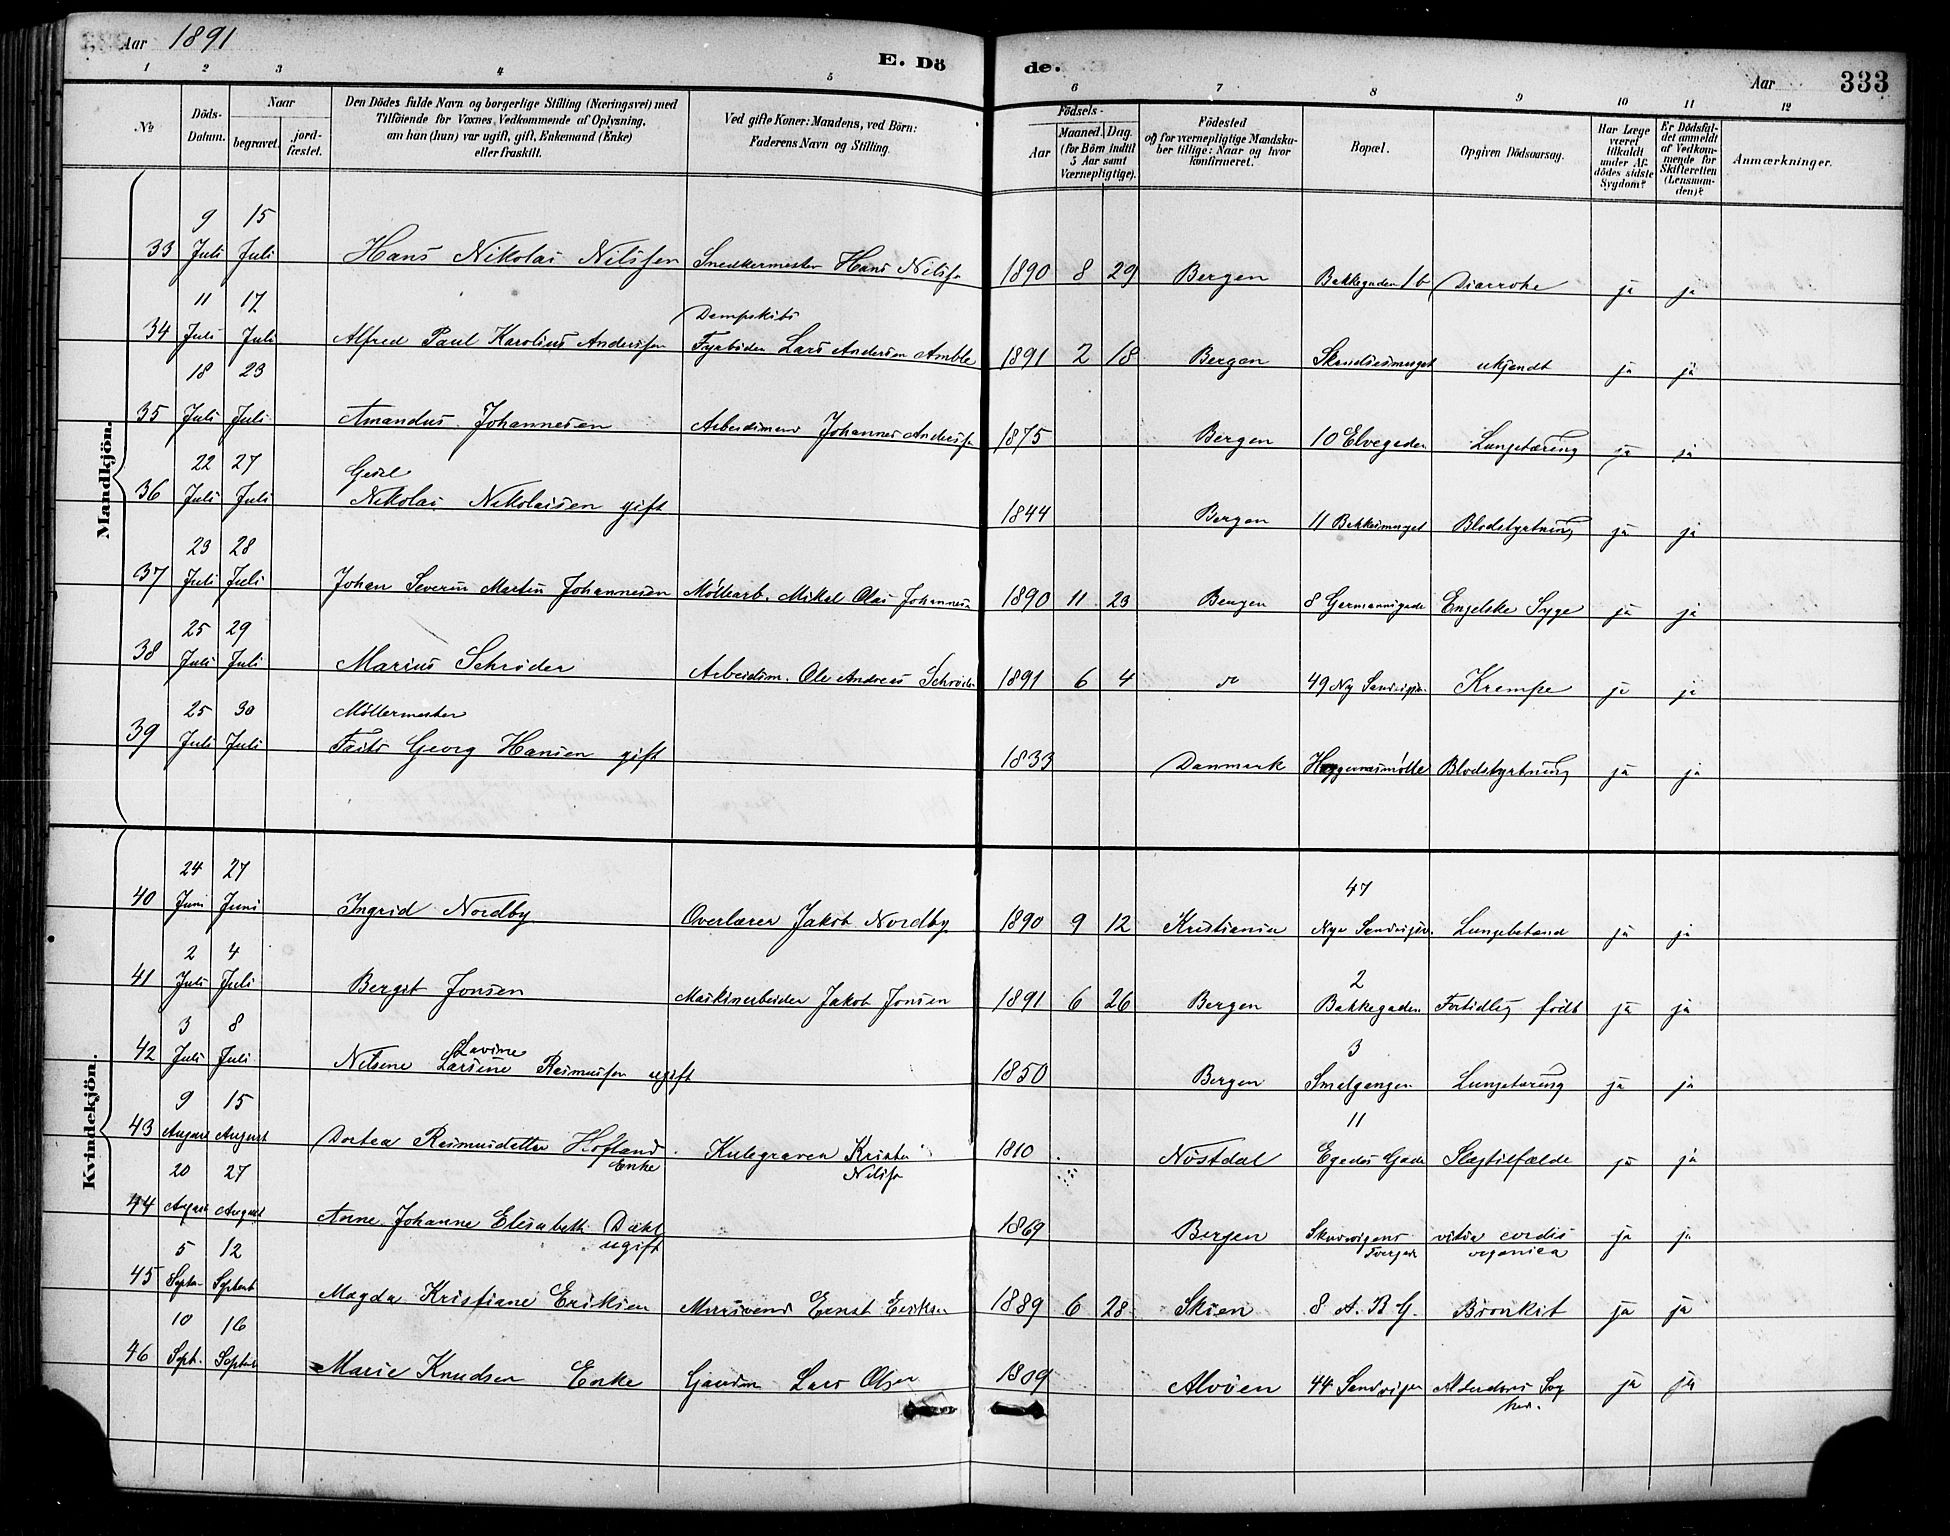 Aar 1891
E. Döde.
Aar 333
1 2 3 4 5 6 7 8 9 10 11 12
№
Döds-Datum.
Naar
begravet.
jord-fæstet.
Den Dödes fulde Navn og borgerlige Stilling (Næringsvei) med
Tilföiende for Voxnes Vedkommende af Oplysning,
om han (hun) var ugift, gift, Enkemand (Enke)
eller fraskilt.
Ved gifte Koner: Mandens, ved Börn:
Faderens Navn og Stilling.
Födsels-
Aar
Maaned. Dag.
(for Börn indtil
5 Aar samt
Værnepligtige).
Födested
og for værnepligtige Mandska-
ber tillige: Naar og hvor
konfirmeret.
Bopæl.
Opgiven Dödsaarsag.
Har Læge
været
tilkaldt
under Af-
dödes sidste
Sygdom?
Er Dödsfal-
det anmeldt
af Vedkom-
mende for
Skifteretten
(Lensman-
den)?
Anmærkninger.
Mandkjön.
33 9 Juli 15 Juli Hans Nikolai Nilssen Snedkermester Hans Nilssen 1890 8 29 Bergen Bakkegaden 1b Diarrohe ja ja
34 11 Juli 17 Juli Alfred Paul Karolius Andersen Dampskibs Fyrböder Lars Andersen Amble 1891 2 18 Bergen ukjendt ja ja
35 18 Juli 23 Juli Amandus Johannesen Arbeidsmand Johannes Andersen 1875 Bergen 10 Elvegaden Lungetæring ja ja
36 22 Juli 27 Juli Nikolai Nikolaisen gift 1844 Bergen 11 Bakkesmuget Blodstyrtning ja ja
37 23 Juli 28 Juli Johan Severin Martin Johannesen Möllearb. Mikal Olai Johannesen 1890 11 23 Bergen 8 Engelske Syge ja ja
38 25 Juli 29 Juli Marius Schrøder Arbeidsm. Ole Andreas Schrøder 1891 6 4 do 49 Ny Sandvigsv. Krampe ja ja
39 25 Juli 30 Juli Möllermester Georg Hansen gift 1833 Danmark Heggernesmølle Blodstyrtning ja ja
Kvindekjön.
40 24 Juni 27 Juni Ingrid Nordby Overlærer Jakob Nordby 1890 9 12 Kristiania 47 Nye Sandvigsv. Lungebetænd ja ja
41 2 Juli 4 Juli Bergit Jonsen Maskinarbeider Jakob Jonsen 1891 6 26 Bergen 2 Bakkegaden Fortidlig født ja ja
42 3 Juli 8 Juli Nilsine Lavine Larsine Rasmussen ugift 1850 Bergen 3 Smalgangen Lungetæring ja ja
43 9 August 15 August Dortea Rasmusdatter Hofland Enke Kulegraver Nilssen 1810 Nøstdal 11 Egedes Gade Slagtilfælde ja ja
44 20 August 27 August Anne Johanne Elisabeth Dahl ugift 1869 Bergen Sandvigens Tvergade vitia cordis organica ja ja
45 5 Septr. 12 Septemb Magda Kristiane Eriksen Mursvend Ernst Eriksen 1889 6 28 Skien 8 A. B G. Bronkit ja ja
46 10 Sept. 16 Septemb Marie Knudsen Enke Lars Olsen 1809 Alvöen 44 Sandvigen Alderdoms Svaghed. ja ja